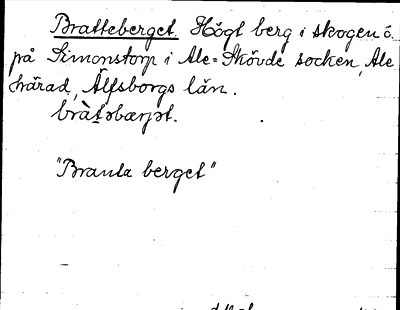 Bratteberget. Högt berg i skogen ö.
på Simonstorp i Ale-Skövde socken, Ale
härad, Älfsborgs län.
bràt̠ɔbærjɔt.
"Branta berget"